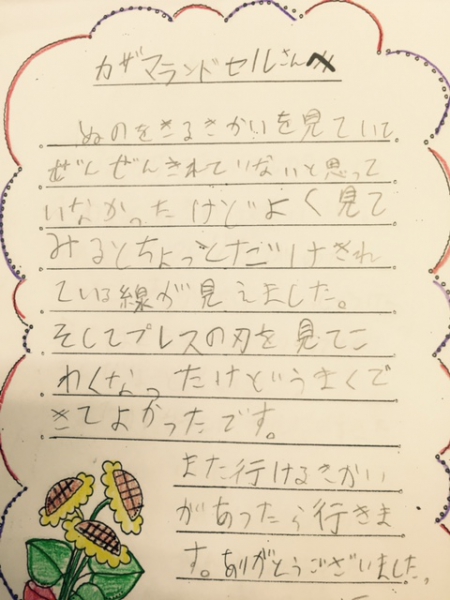 カザマランドセルさんへ
ぬのをきるきかいを見ていて
ぜんぜんきれていないと思って
いなかったけどよく見て
みるとちょっとだけきれ
ている線が見えました。
そしてプレスの刃を見てこ
わくなったけどうまくで
きてよかったです。
また行けるきかい
があったら行きま
す。ありがとうございました。